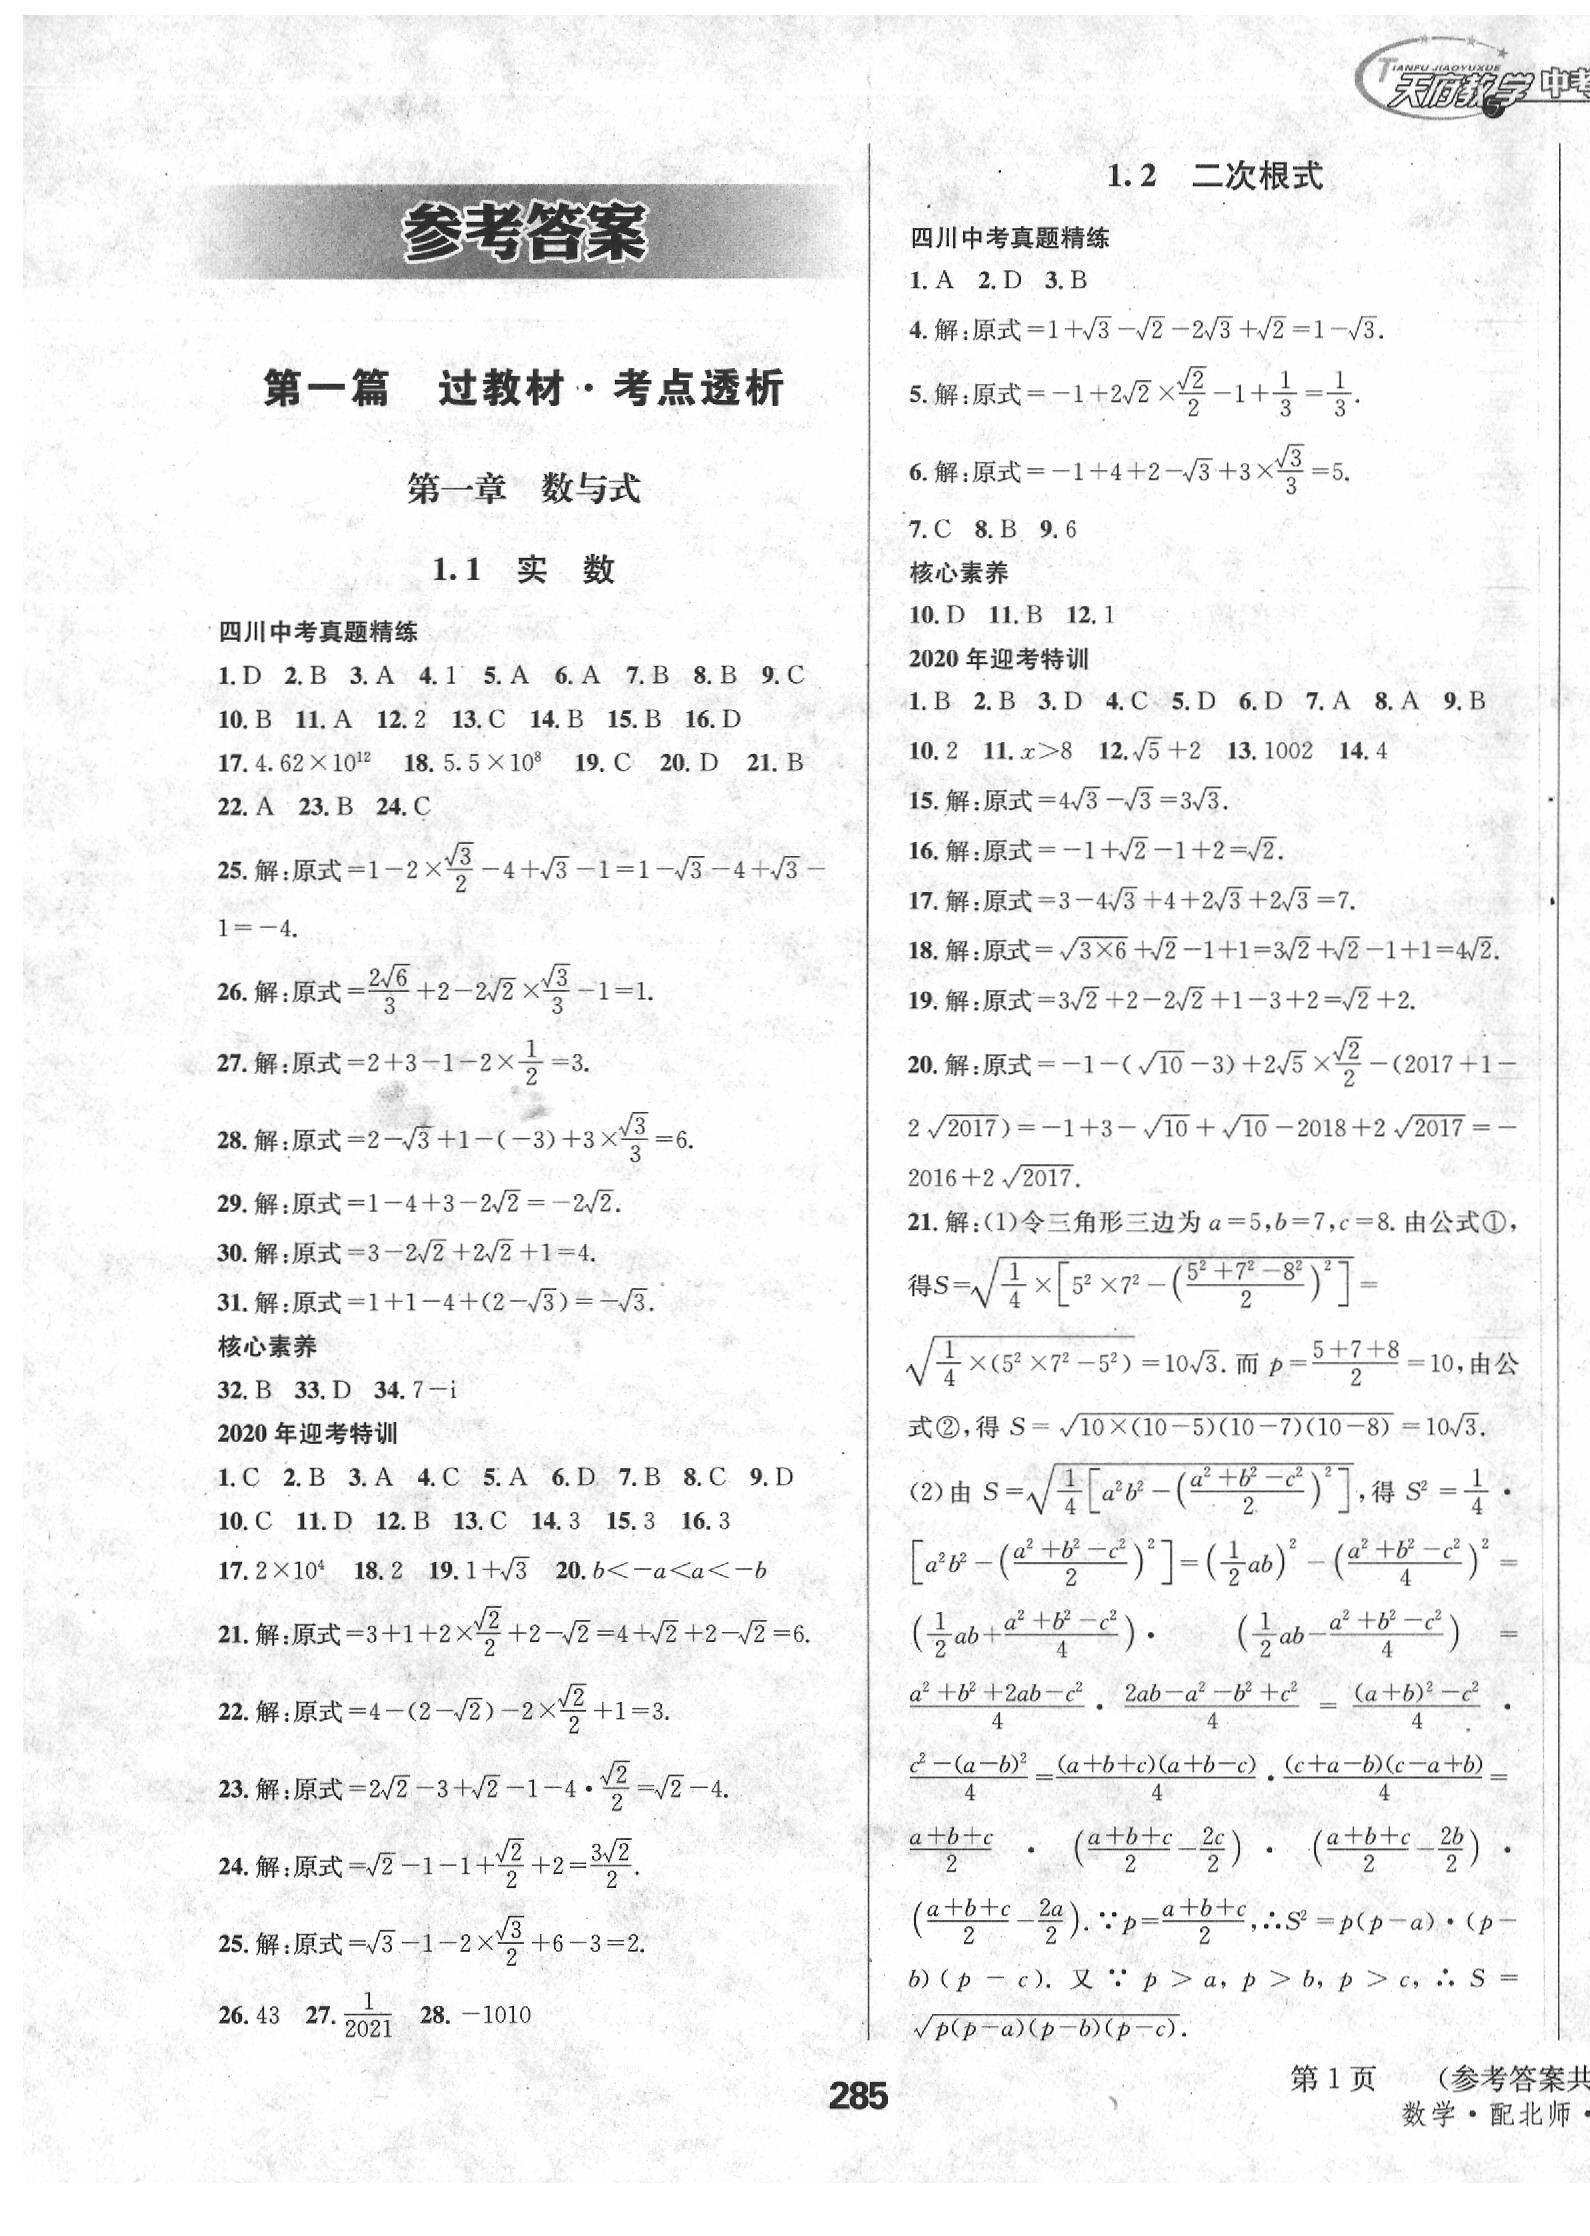 TIANFU JIAOYUXUE
天府教学 中考
参考答案
第一篇 过教材·考点透析
第一章 数与式
1.1 实 数
四川中考真题精练
1.D 2.B 3.A 4.1 5.A 6.A 7.B 8.B 9.C
10.B 11.A 12.2 13.C 14.B 15.B 16.D
17.4.62×10¹² 18.5.5×10⁸ 19.C 20.D 21.B
22.A 23.B 24.C
25.解:原式=1-2×√3/2-4+√3-1=1-√3-4+√3-
1=-4.
26.解:原式=2√6/3+2-2√2×√3/3-1=1.
27.解:原式=2+3-1-2×1/2=3.
28.解:原式=2-√3+1-(-3)+3×√3/3=6.
29.解:原式=1-4+3-2√2=-2√2.
30.解:原式=3-2√2+2√2+1=4.
31.解:原式=1+1-4+(2-√3)=-√3.
核心素养
32.B 33.D 34.7-i
2020年迎考特训
1.C 2.B 3.A 4.C 5.A 6.D 7.B 8.C 9.D
10.C 11.D 12.B 13.C 14.3 15.3 16.3
17.2×10⁴ 18.2 19.1+√3 20.b<-a<a<-b
21.解:原式=3+1+2×√2/2+2-√2=4+√2+2-√2=6.
22.解:原式=4-(2-√2)-2×√2/2+1=3.
23.解:原式=2√2-3+√2-1-4·√2/2=√2-4.
24.解:原式=√2-1-1+√2/2+2=3√2/2.
25.解:原式=√3-1-2×√3/2+6-3=2.
26.43 27.1/2021 28.-1010
1.2 二次根式
四川中考真题精练
1.A 2.D 3.B
4.解:原式=1+√3-√2-2√3+√2=1-√3.
5.解:原式=-1+2√2×√2/2-1+1/3=1/3.
6.解:原式=-1+4+2-√3+3×√3/3=5.
7.C 8.B 9.6
核心素养
10.D 11.B 12.1
2020年迎考特训
1.B 2.B 3.D 4.C 5.D 6.D 7.A 8.A 9.B
10.2 11.x>8 12.√5+2 13.1002 14.4
15.解:原式=4√3-√3=3√3.
16.解:原式=-1+√2-1+2=√2.
17.解:原式=3-4√3+4+2√3+2√3=7.
18.解:原式=√(3×6)+√2-1+1=3√2+√2-1+1=4√2.
19.解:原式=3√2+2-2√2+1-3+2=√2+2.
20.解:原式=-1-(√10-3)+2√5×√2/2-(2017+1-
2√2017)=-1+3-√10+√10-2018+2√2017=-
2016+2√2017.
21.解:(1)令三角形三边为a=5,b=7,c=8.由公式①,
得S=√(1/4×[5²×7²-((5²+7²-8²)/2)²])=
√(1/4×(5²×7²-5²))=10√3.而p=(5+7+8)/2=10,由公
式②,得S=√(10×(10-5)(10-7)(10-8))=10√3.
(2)由S=√(1/4[a²b²-((a²+b²-c²)/2)²]),得S²=1/4·
[a²b²-((a²+b²-c²)/2)²]=(1/2ab)²-((a²+b²-c²)/4)²=
(1/2ab+(a²+b²-c²)/4)·(1/2ab-(a²+b²-c²)/4)=
(a²+b²+2ab-c²)/4·(2ab-a²-b²+c²)/4=((a+b)²-c²)/4·
(c²-(a-b)²)/4=(a+b+c)(a+b-c)/4·(c+a-b)(c-a+b)/4=
(a+b+c)/2·((a+b+c)/2-2c/2)·((a+b+c)/2-2b/2)·
((a+b+c)/2-2a/2).∵p=(a+b+c)/2,∴S²=p(p-a)·(p-
b)(p-c).又∵p>a,p>b,p>c,∴S=
√(p(p-a)(p-b)(p-c)).
285
第1页 (参考答案共
数学·配北师·